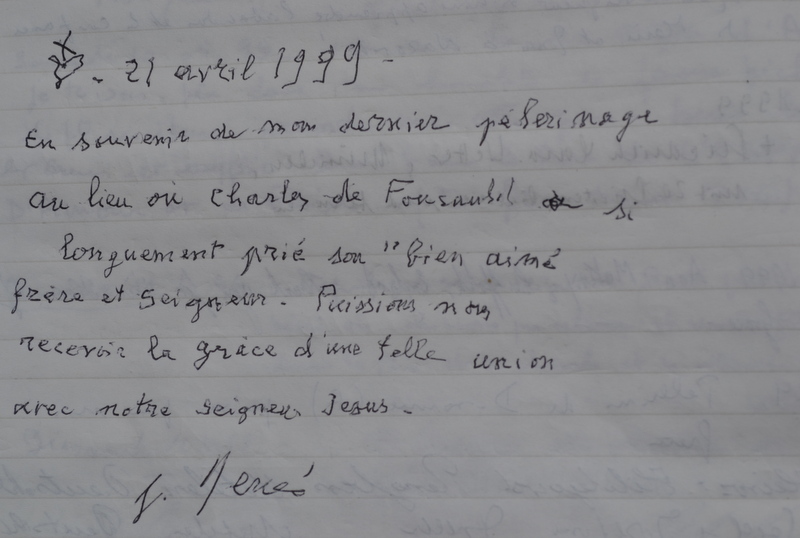 - 21 avril 1999 -
En souvenir de mon dernier pèlerinage
au lieu où Charles de Foucauld a si
longuement prié son "bien aimé
frère et Seigneur. Puissions nous
recevoir la grâce d'une telle union
avec notre Seigneur Jesus.